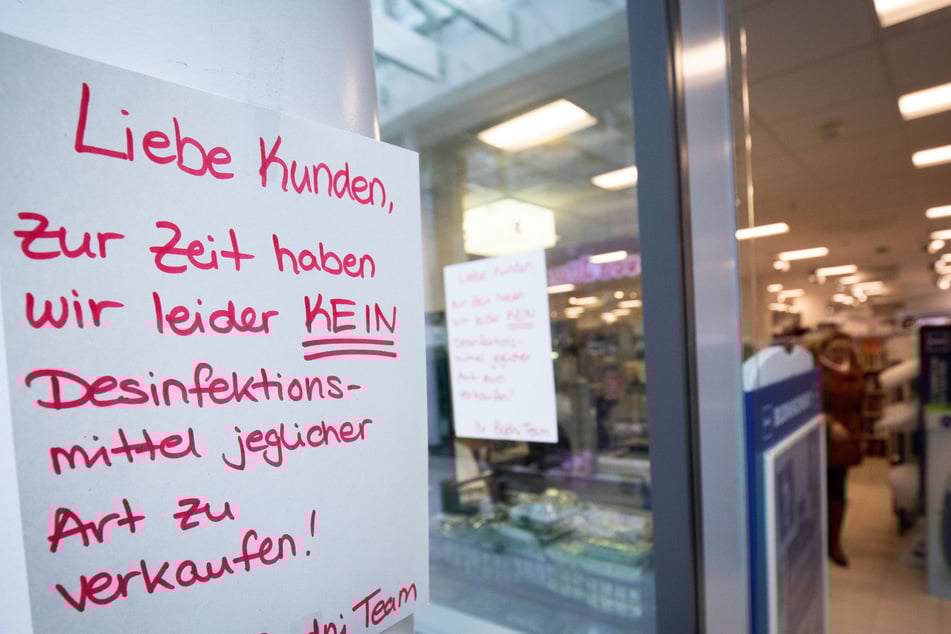 Liebe Kunden,
zur Zeit haben
wir leider KEIN
Desinfektions-
mittel jeglicher
Art zu
verkaufen!
Budni Team
Liebe Kunden,
zur Zeit haben
wir leider KEIN
Desinfektions-
mittel jeglicher
Art zum
verkaufen!
Ihr Budni Team